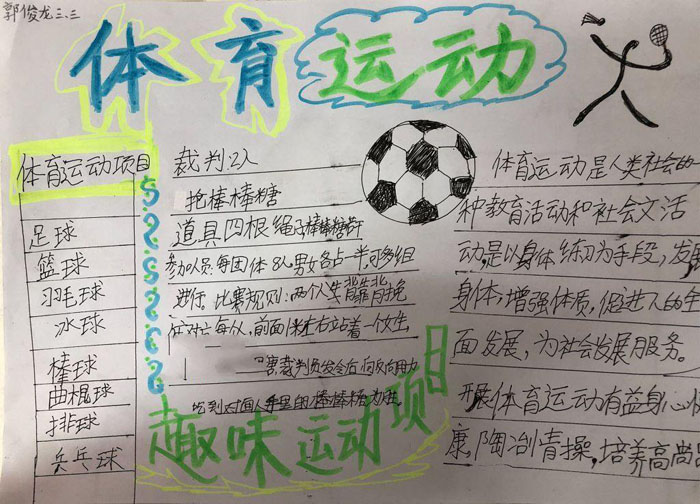 郭俊龙三.三
体育运动
体育运动项目
足球
篮球
羽毛球
冰球
棒球
曲棍球
排球
乒乓球
裁判:2人
抢棒棒糖
道具四根绳子棒棒糖若干
参加人员每团体8人男女各占一半可多组
进行。比赛规则:两个人背靠背挽
前面1米左右站着一个女生
裁判员发令后向反向用力
吃到对面人手里的棒棒糖为胜
趣味运动项目
体育运动是人类社会的
种教育活动和社会文活
动,是以身体练习为手段,发展
身体,增强体质,促进人的全
面发展,为社会发展服务。
开展体育运动有益身心
康,陶冶情操,培养高尚品